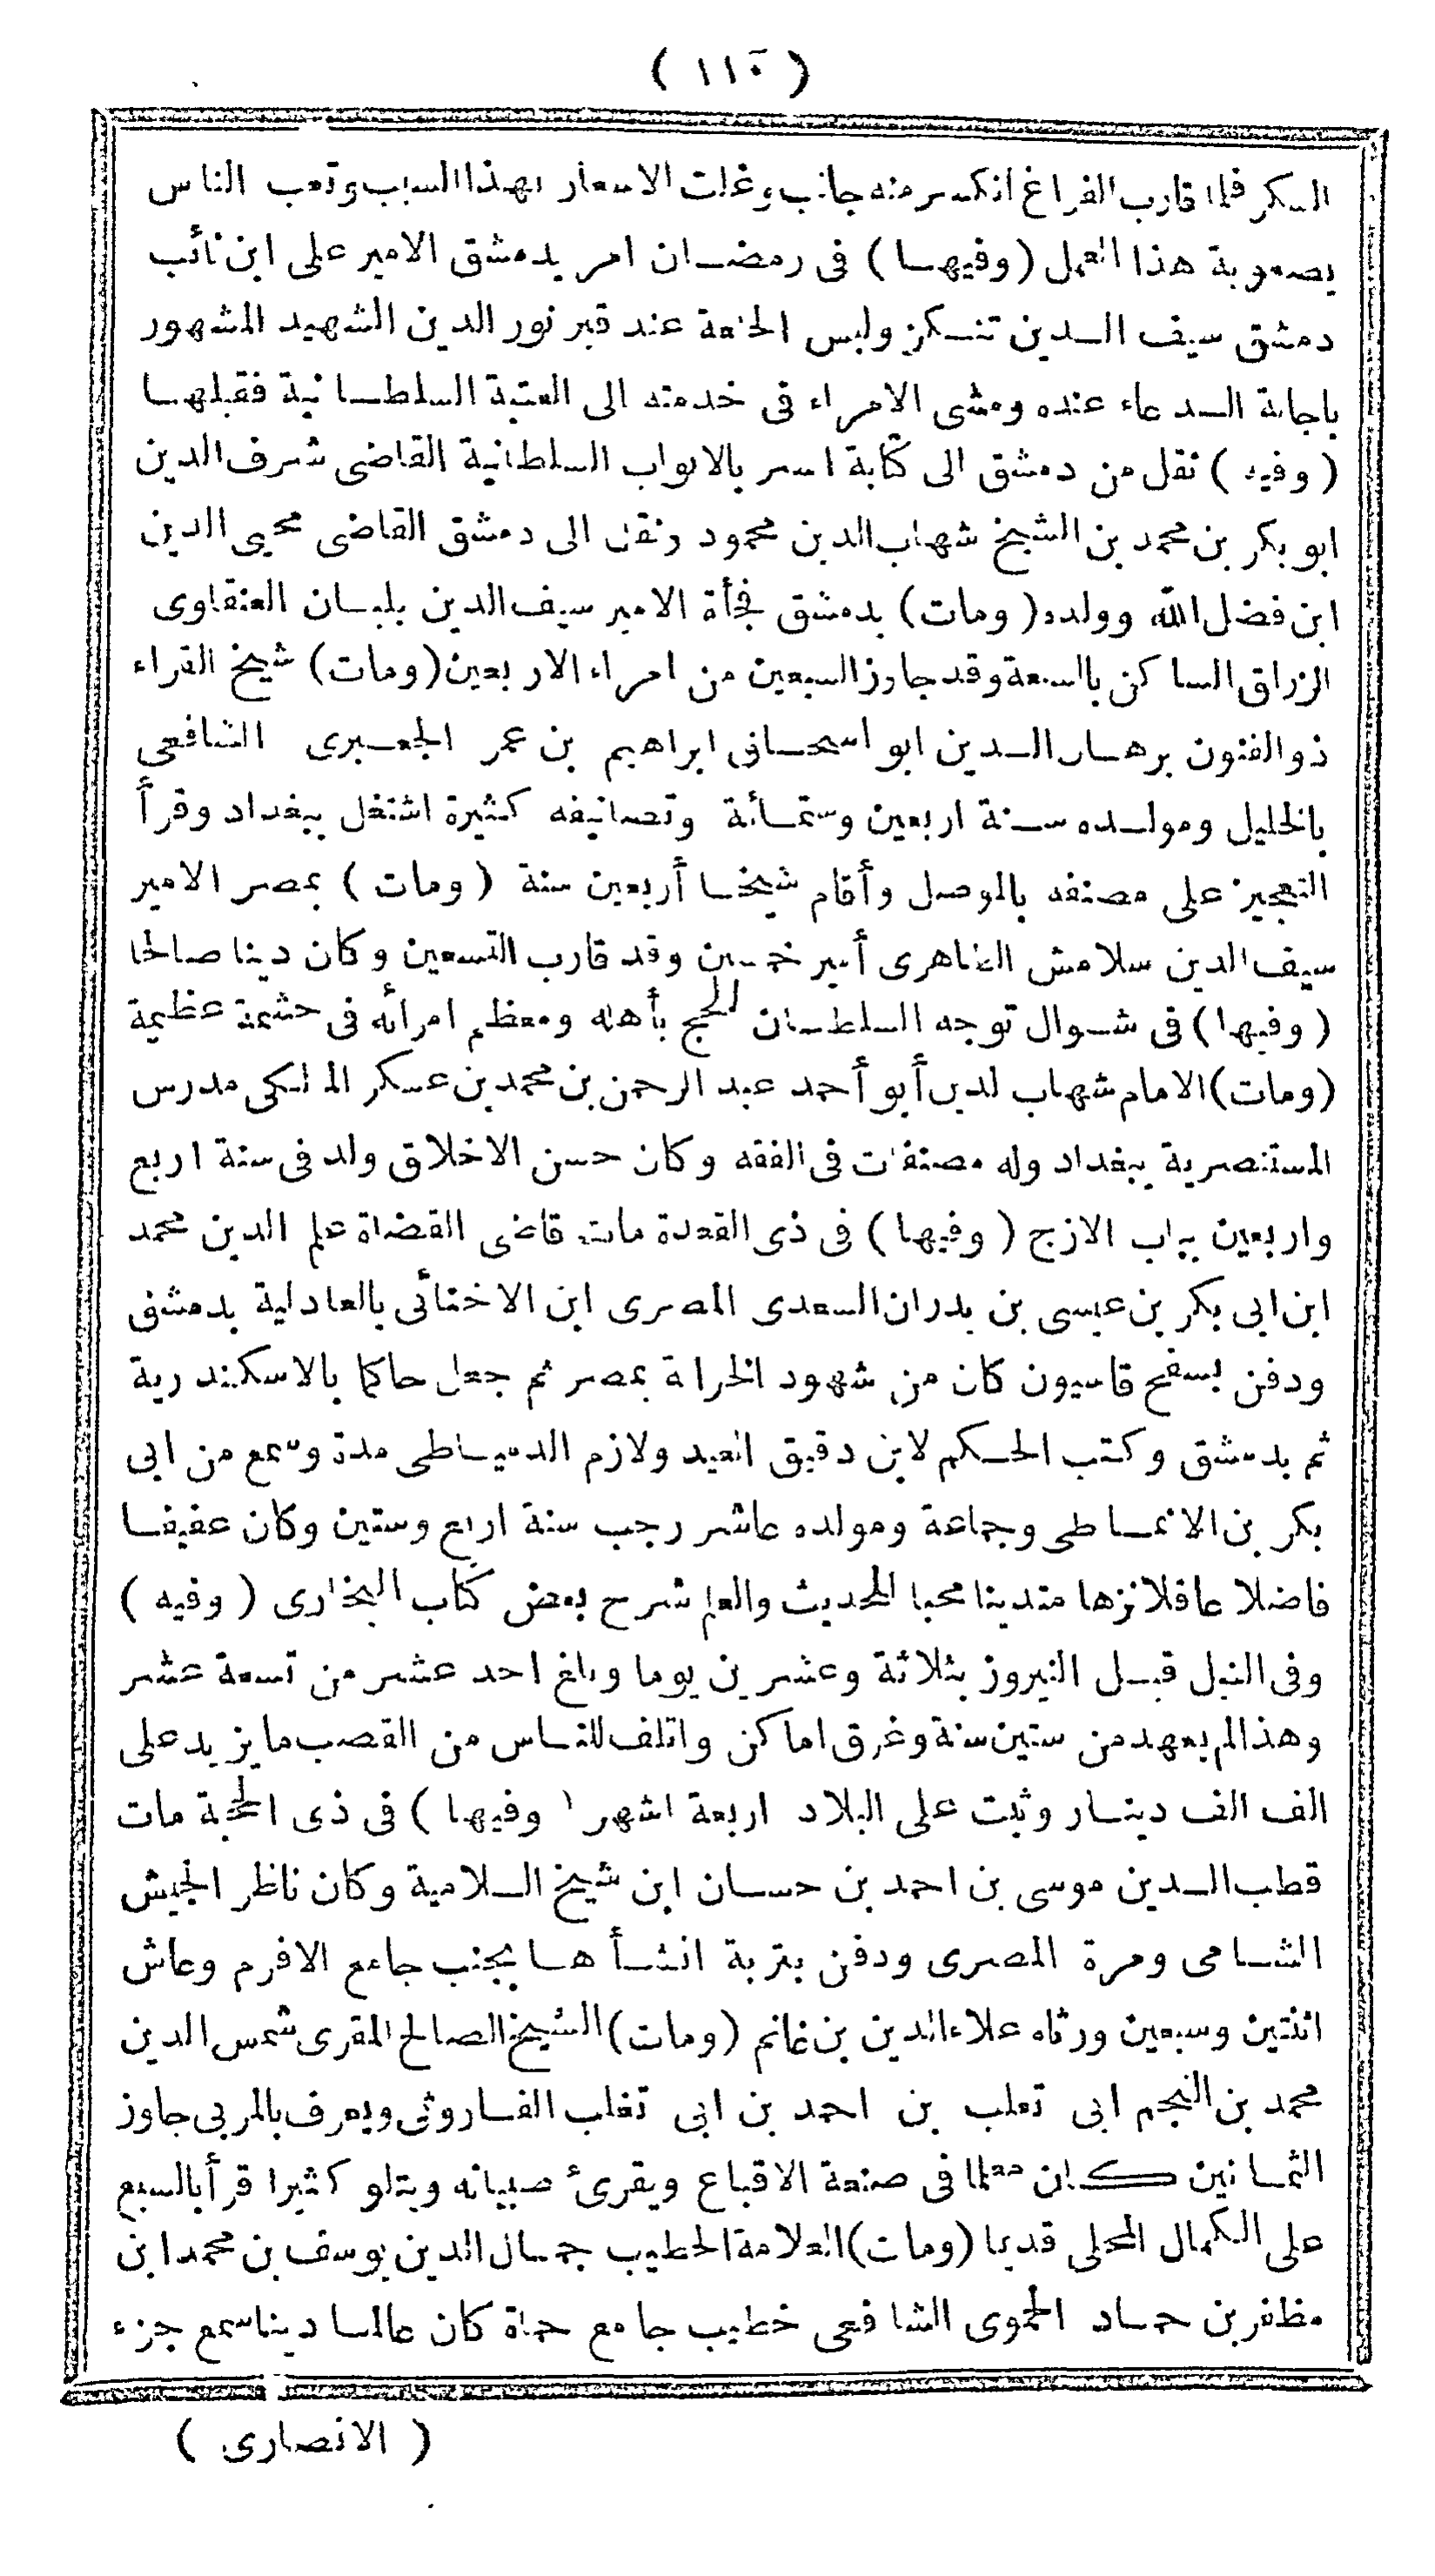 ( ١١٠ )
السكر فلما قارب الفراغ انكسر منه جانب وغلت الاسعار بهذا السبب وتعب الناس
بصعوبة هذا العمل (وفيهـا) فى رمضـان امر بدمشق الامير على ابن نائب
دمشق سيف الـدين تنـكز ولبس الخلعة عند قبر نور الدين الشهيد المشهور
باجابة الـدعاء عنده ومشى الامراء فى خدمته الى العتبة السلطـانية فقبلهـا
( وفيه ) نقل من دمشق الى كتابة السر بالابواب السلطانية القاضى شرف الدين
ابو بكر بن محمد بن الشيخ شهاب الدين محمود ونقل الى دمشق القاضى محيى الدين
ابن فضل الله وولده (ومات) بدمشق فجأة الامير سيف الدين بلبـان العنقاوى
الزراق الساكن بالسبعة وقد جاوز السبعين من امراء الاربعين (ومات) شيخ القراء
ذو الفنون برهـان الـدين ابو اسحـاق ابراهيم بن عمر الجعـبرى الشافعى
بالخليل ومولـده سـنة اربعين وستمـائة وتصانيفه كثيرة اشتغل ببغداد وقرأ
التعجيز على مصنفه بالموصل وأقام شيخـا أربعين سنة ( ومات ) بمصر الامير
سيف الدين سلامش الظاهرى أمير خمسين وقد قارب التسعين وكان دينا صالحا
( وفيها ) فى شـوال توجه السلطـان للحج بأهله ومعظم امرائه فى حشمة عظيمة
(ومات) الامام شهاب الدين أبو أحمد عبد الرحمن بن محمد بن عسكر المالكى مدرس
المستنصرية ببغداد وله مصنفات فى الفقه وكان حسن الاخلاق ولد فى سنة اربع
واربعين بباب الازج ( وفيها ) فى ذى القعدة مات قاضى القضاة علم الدين محمد
ابن ابى بكر بن عيسى بن بدران السعدى المصرى ابن الاخنائى بالعادلية بدمشق
ودفن بسفح قاسيون كان من شهود الخزانة بمصر ثم جعل حاكما بالاسكندرية
ثم بدمشق وكتب الحـكم لابن دقيق العيد ولازم الدميـاطى مدة وسمع من ابى
بكر بن الانمـاطى وجماعة ومولده عاشر رجب سنة اربع وستين وكان عفيفـا
فاضلا عاقلا نزها متدينا محبا للحديث والعلم شرح بعض كتاب البخارى ( وفيه )
وفى النيل قبـل النيروز بثلاثة وعشرين يوما وبلغ احد عشر من تسعة عشر
وهذا لم يعهد من ستين سنة وغرق اماكن واتلف للنـاس من القصب ما يزيد على
الف الف دينـار وثبت على البلاد اربعة اشهر ( وفيها ) فى ذى الحجة مات
قطب الـدين موسى بن احمد بن حسـان ابن شيخ السـلامية وكان ناظر الجيش
الشـامى ومرة المصرى ودفن بتربة انشـأهـا بجنب جامع الافرم وعاش
اثنتين وسبعين ورثاه علاء الدين بن غانم (ومات) الشيخ الصالح المقرى شمس الدين
محمد بن النجم ابى تعلب بن احمد بن ابى تغلب الفـاروثى ويعرف بالمربى جاوز
الثمـانين كـان معلما فى صنعة الاقباع ويقرئ صبيانه ويتلو كثيرا قرأ بالسبع
على الكمال المحلى قديما (ومات) العلامة الخطيب جمـال الدين يوسف بن محمد ابن
مظفر بن حمـاد الحموى الشافعى خطيب جامع حماة كان عالمـا دينا سمع جزء
( الانصارى )